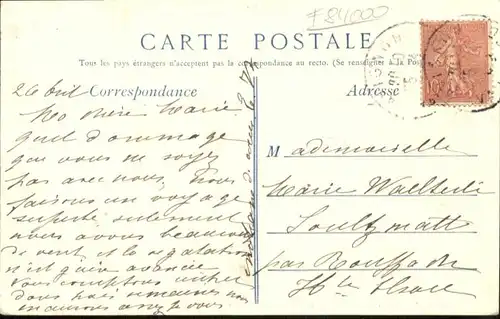 F 84000
CARTE POSTALE
Tous les pays étrangers n'acceptent pas la correspondance au recto. (Se renseigner à la Pos
Correspondance
Adresse
26 Avril
Ma chère Marie
quel dommage
que vous ne soyez
pas avec nous. Nous
faisons un voyage
superbe seulement
nous avons beaucoup
de vent et la végétation
n'est guère avancée
Nous comptons rentrer
dans trois semaines
Mademoiselle
Marie
Soultzmatt
par Rouffach
Hte Alsace